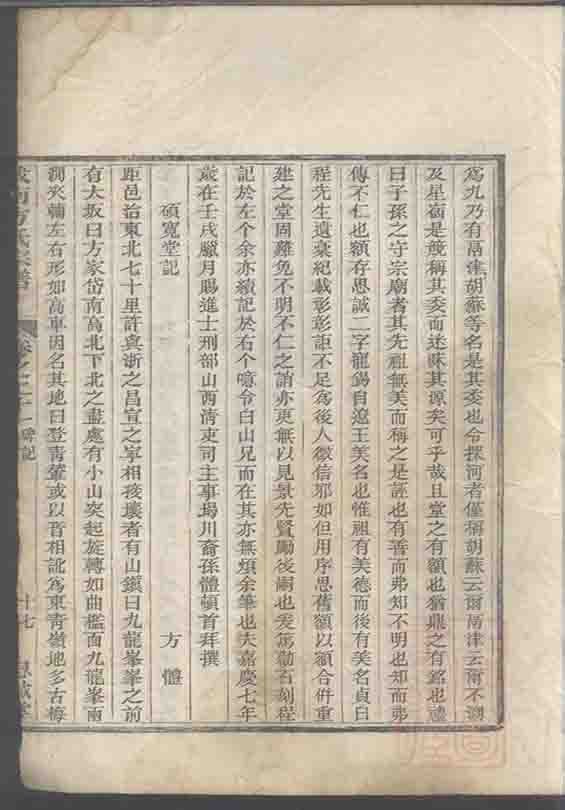 為九乃有鬲津胡蘇等名是其委也今探河者僅稱胡蘇云爾鬲津云爾不溯
及星宿是競稱其委而迷昧其源矣可乎哉且堂之有額也猶鼎之有銘也禮
曰子孫之守宗廟者其先祖無美而稱之是誣也有善而弗知不明也知而弗
傳不仁也額存思誠二字寵錫自遼王美名也惟祖有美德而後有美名貞白
程先生遺稾紀載彰彰詎不足為後人徵信邪如但用序思舊額以額合併重
建之堂固難免不明不仁之誚亦更無以見景先賢勵後嗣也爰篤勒石刻程
記於左个余亦續記於右个噫令白山兄而在其亦無煩余筆也夫嘉慶七年
歲在壬戌臘月賜進士刑部山西清吏司主事場川裔孫體頓首拜撰
碩寬堂記 方體
距邑治東北七十里許與浙之昌宣之寧相接壤者有山鎮曰九龍峯峯之前
有大坂曰方家岱南高北下北之盡處有小山突起旋轉如曲檻面九龍峯兩
澗夾輔左右形如高車因名其地曰登青輦或以音相訛為東青嶺地多古梅
方氏宗譜 卷之二十一 舊記 十七